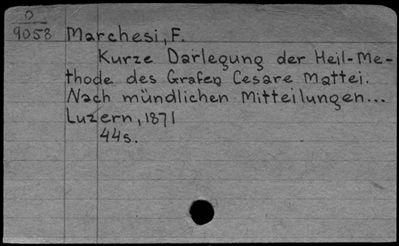 D
9058 Marchesi, F.
Kurze Darlegung der Heil-Me-
thode des Grafen Cesare Mattei.
Nach mündlichen Mitteilungen...
Luzern, 1871
44s.